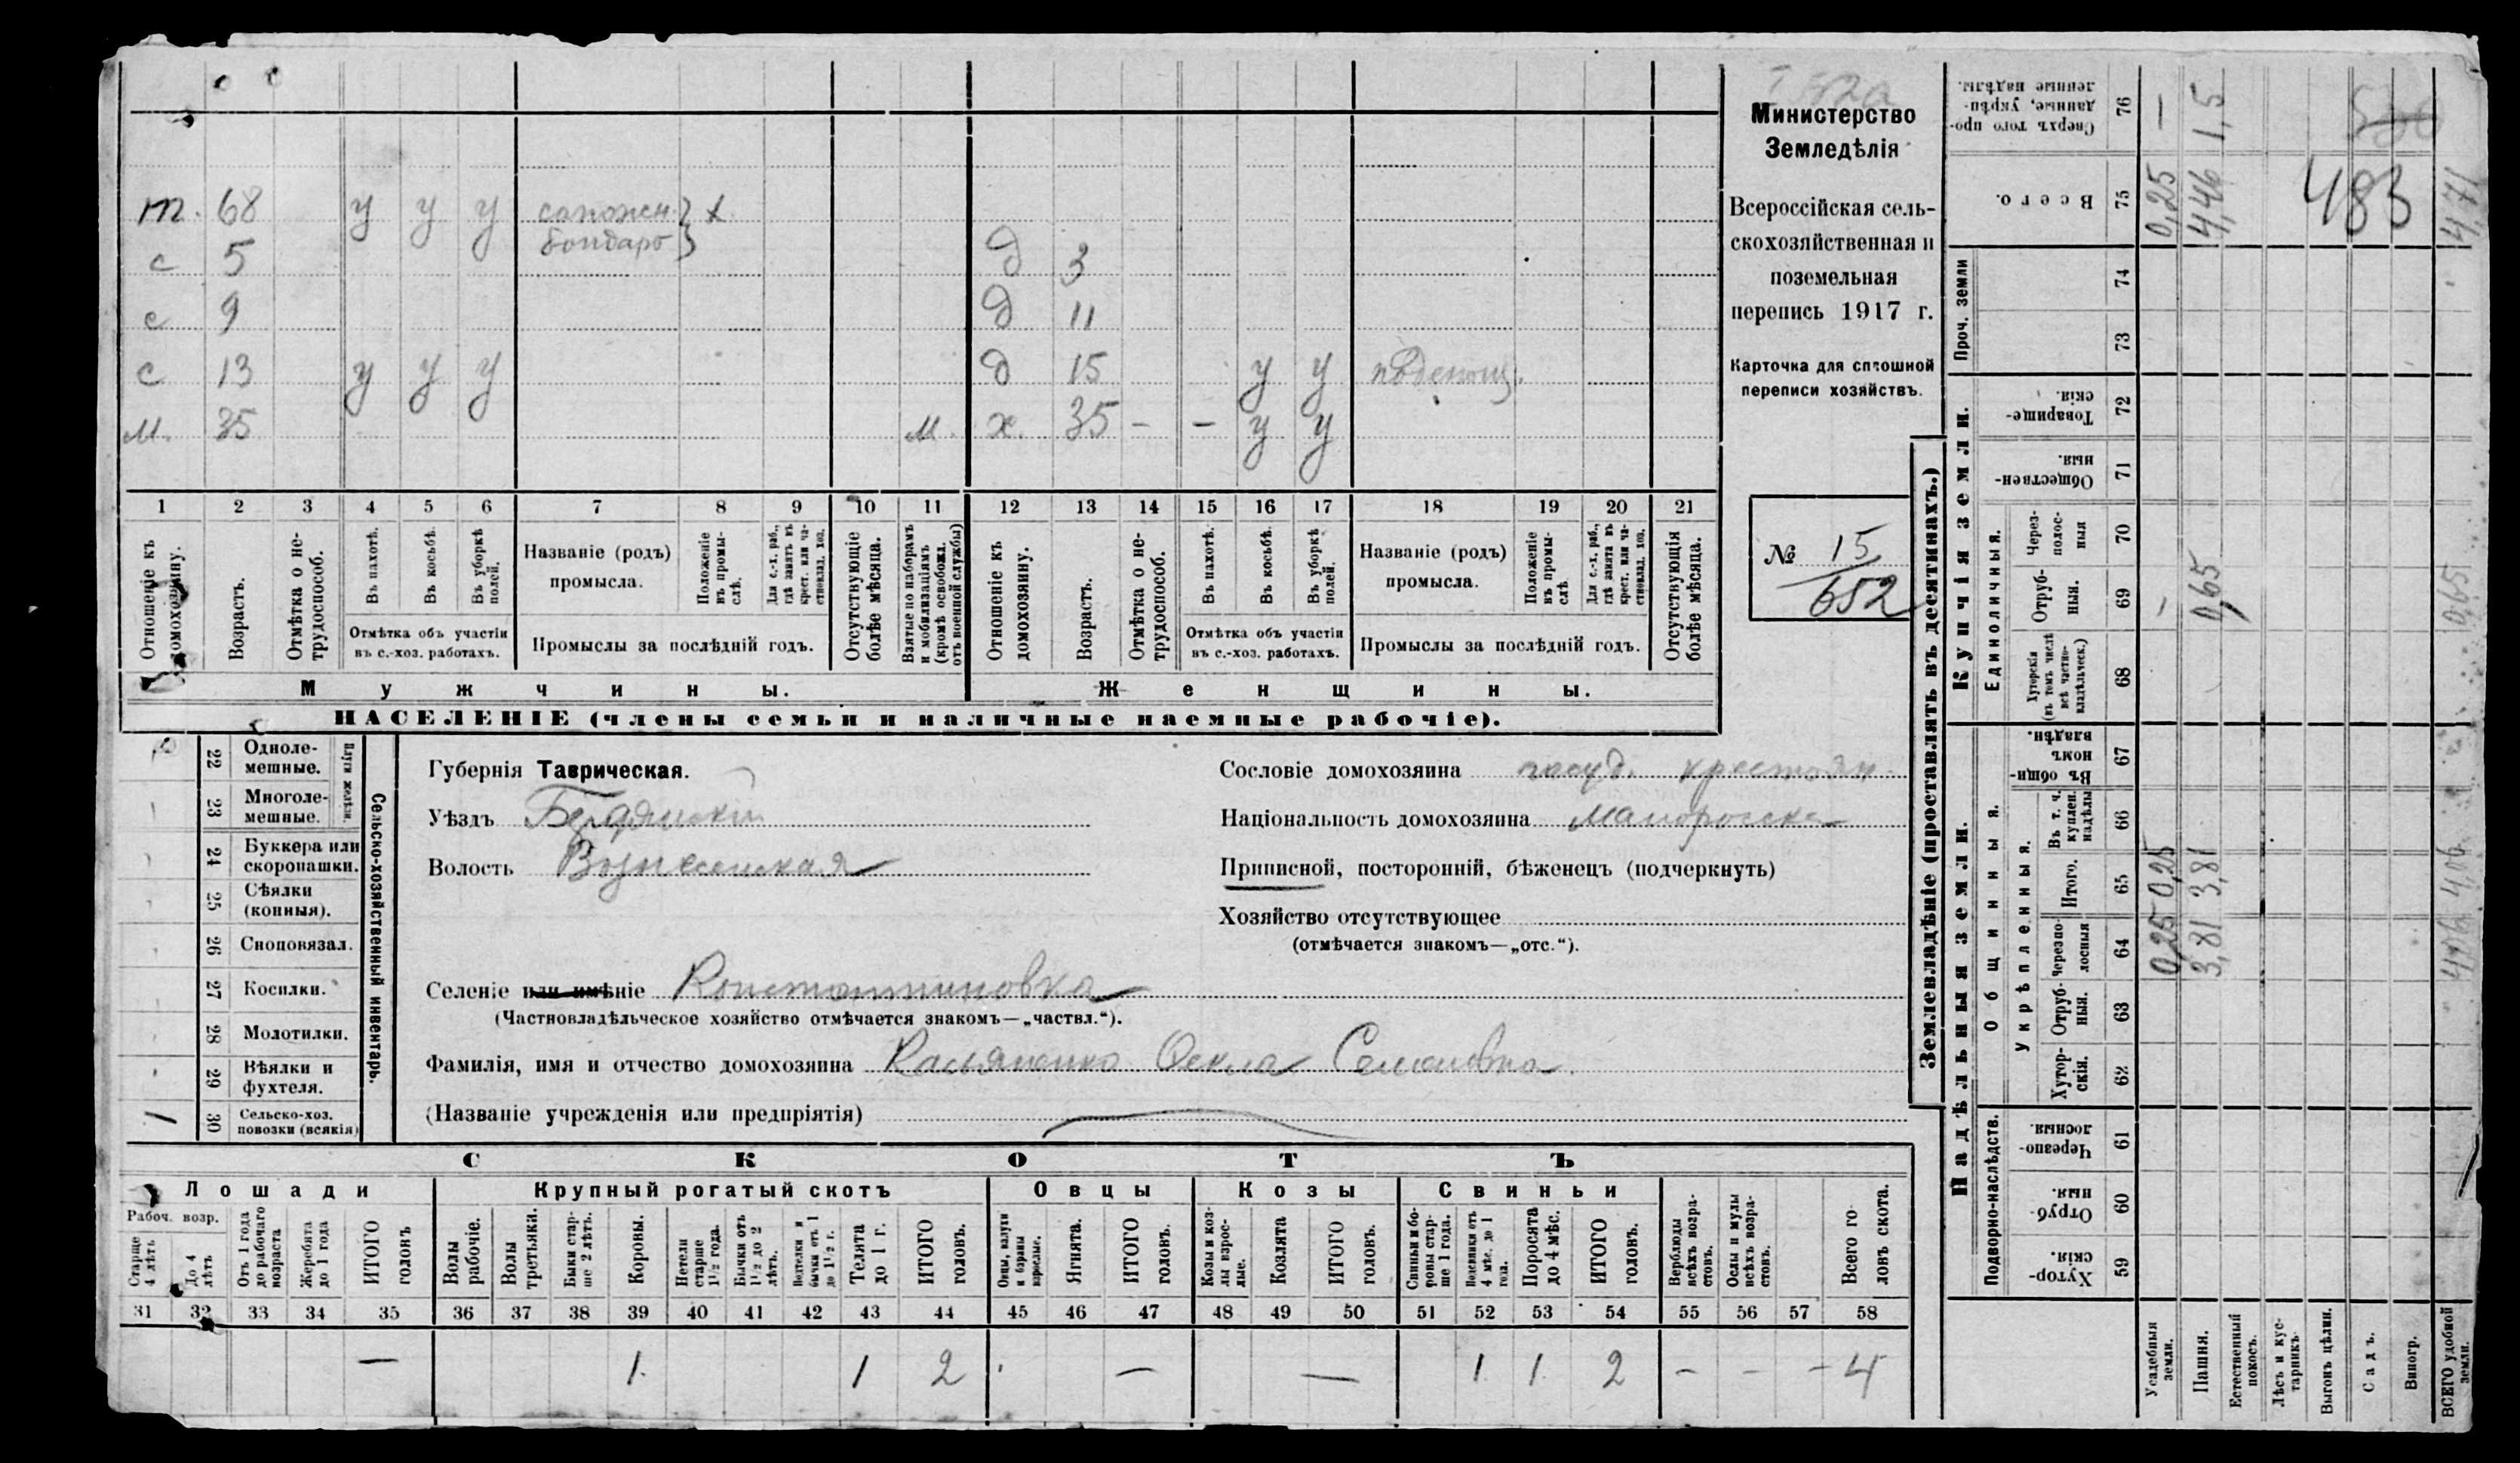 Министерство
Земледѣлія
Всероссійская сель-
скохозяйственная и
поземельная
перепись 1917 г.
Карточка для сплошной
переписи хозяйствъ.
№ 15
652
т. 68 у у у сапожн. } х
бондарь }
с 5 д 3
с 9 д 11
с 13 у у у д 15 у у поденщ.
м. 35 м. х. 35 – – у у
1 2 3 4 5 6 7 8 9 10 11 12 13 14 15 16 17 18 19 20 21
Отношеніе къ домохозяину.
Возрастъ.
Отмѣтка о не-трудоспособ.
Въ пахотѣ.
Въ косьбѣ.
Въ уборкѣ полей.
Названіе (родъ) промысла.
Положеніе въ промы-слѣ.
Для с.-х. раб., гдѣ занятъ въ крест. или ча-стновлад. хоз.
Отсутствующіе болѣе мѣсяца.
Взятые по наборамъ и мобилизаціямъ (кромѣ освобожд. отъ военной службы)
Отношеніе къ домохозяину.
Возрастъ.
Отмѣтка о не-трудоспособ.
Въ пахотѣ.
Въ косьбѣ.
Въ уборкѣ полей.
Названіе (родъ) промысла.
Положеніе въ промы-слѣ
Для с.-х. раб., гдѣ занята въ крест. или ча-стновлад. хоз.
Отсутствующія болѣе мѣсяца.
Отмѣтка объ участіи въ с.-хоз. работахъ.
Промыслы за послѣдній годъ.
Отмѣтка объ участіи въ с.-хоз. работахъ.
Промыслы за послѣдній годъ.
Мужчины.
Женщины.
НАСЕЛЕНІЕ (члены семьи и наличные наемные рабочіе).
Сельско-хозяйственный инвентарь.
Плуги желѣзн.
22 Одноле-мешные.
23 Многоле-мешные.
24 Буккера или скоропашки.
25 Сѣялки (конныя).
26 Сноповязал.
27 Косилки.
28 Молотилки.
29 Вѣялки и фухтеля.
1 30 Сельско-хоз. повозки (всякія)
Губернія Таврическая.
Уѣздъ Бердянскій
Волость Вознесенская
Сословіе домохозяина госуд. крестьян.
Національность домохозяина малоросска
Приписной, посторонній, бѣженецъ (подчеркнуть)
Хозяйство отсутствующее
(отмѣчается знакомъ—„отс.“).
Селеніе или имѣніе Константиновка
(Частновладѣльческое хозяйство отмѣчается знакомъ—„частвл.“).
Фамилія, имя и отчество домохозяина Касьяненко Фекла Семеновна.
(Названіе учрежденія или предпріятія)
СКОТЪ
Лошади
Крупный рогатый скотъ
Овцы
Козы
Свиньи
Рабоч. возр.
Старше 4 лѣтъ
До 4 лѣтъ
Отъ 1 года до рабочаго возраста
Жеребята до 1 года
ИТОГО головъ
Волы рабочіе.
Волы третьяки.
Быки стар-ше 2 лѣтъ.
Коровы.
Нетели старше 1½ года.
Бычки отъ 1½ до 2 лѣтъ.
Телки и бычки отъ 1 до 1½ г.
Телята до 1 г.
ИТОГО головъ.
Овцы, валухи и бараны взрослые.
Ягнята.
ИТОГО головъ.
Козы и коз-лы взрос-лые.
Козлята
ИТОГО головъ.
Свиньи и бо-ровы стар-ше 1 года.
Подсвинки отъ 4 мѣс. до 1 года.
Поросята до 4 мѣс.
ИТОГО головъ.
Верблюды всѣхъ возра-стовъ.
Ослы и мулы всѣхъ возра-стовъ.
Всего го-ловъ скота.
31 32 33 34 35 36 37 38 39 40 41 42 43 44 45 46 47 48 49 50 51 52 53 54 55 56 57 58
— 1. 1 2 — — 1 1 2 – – – 4
Землевладѣніе (проставлять въ десятинахъ.)
Надѣльныя земли.
Купчія земли.
Проч. земли
Подворно-наслѣдств.
Общинныя.
Укрѣпленныя.
Единоличныя.
Хутор-скія. 59
Отруб-ныя. 60
Черезпо-лосныя. 61
Хутор-скія. 62
Отруб-ныя. 63
Черезпо-лосныя 64
Итого. 65
Въ т. ч. куплен. надѣлы 66
Въ общи-номъ владѣн. 67
Хуторскія (въ томъ числѣ всѣ частно-владѣльческ.) 68
Отруб-ныя. 69
Через-полос-ныя 70
Обществен-ныя. 71
Товарище-скія. 72
73
74
Всего. 75
Сверхъ того про-данные, укрѣп-ленные надѣлы. 76
Усадебныя земли. 0,25 0,25 – 0,25 –
Пашня. 3,81 3,81 0,65 4,46 1,5
Естественный покосъ.
Лѣсъ и кус-тарникъ.
Выгонъ цѣлин.
Садъ.
Виногр.
ВСЕГО удобной земли. 4,06 4,06 0,65 4,71
483